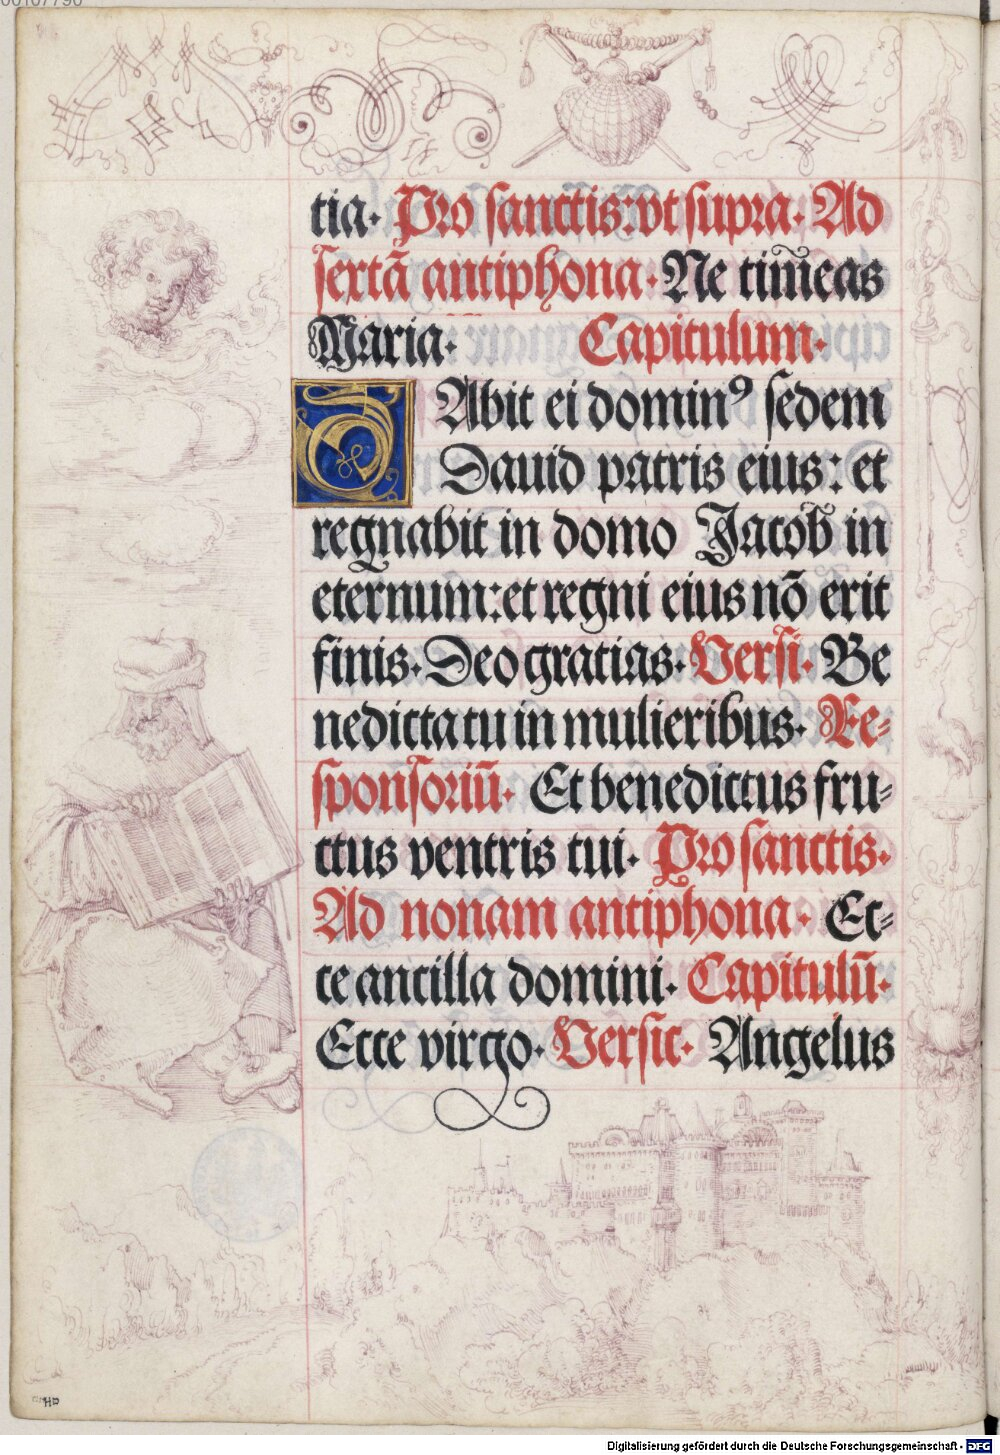 00107790
tia. Pro sanctis: vt supra. Ad
sextã antiphona. Ne tim̃eas
Maria. Capitulum.
DAbit ei dominꝰ sedem
Dauid patris eius: et
regnabit in domo Jacob in
eternum: et regni eius nõ erit
finis. Deo gratias. Versi. Be
nedicta tu in mulieribus. Re-
sponsoriũ. Et benedictus fru-
ctus ventris tui. Pro sanctis.
Ad nonam antiphona. Ec-
ce ancilla domini. Capitulũ.
Ecce virgo. Versic. Angelus
Digitalisierung gefördert durch die Deutsche Forschungsgemeinschaft - DFG